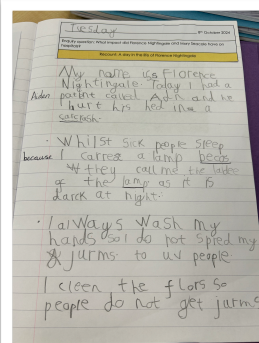 Tuesday
8th October 2024
Enquiry question: What impact did Florence Nightingale and Mary Seacole have on
hospitals?
Research: A day in the life of Florence Nightingale
My name is Florence
Nightingale. Today I had a
Aiden patient called Adn and he
hurt his hed in a
carcrash.
Whilst sick people sleep
because I carres a lamp becos
they call me the ladee
of the lamp as it is
darck at night.
I always wash my
hands so I do not spred my
jurms to uv people.
I cleen the flors so
people do not get jurms